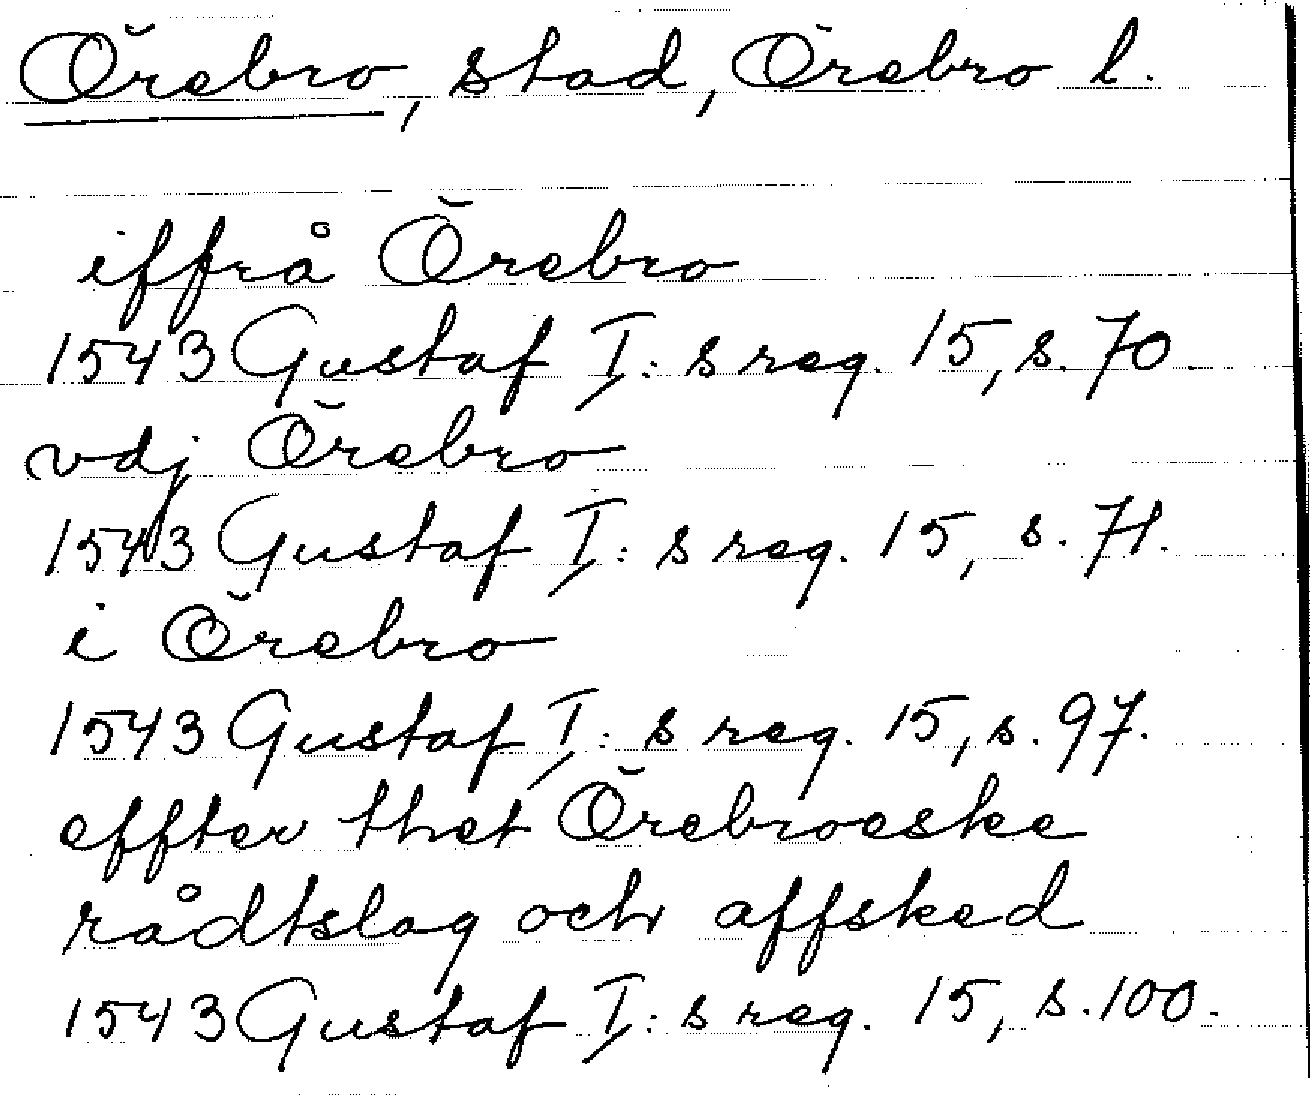 Örebro, stad, Örebro l.
iffrå Örebro
1543 Gustaf I: s reg. 15, s. 70.
vdj Örebro
1543 Gustaf I: s reg. 15, s. 71.
i Örebro
1543 Gustaf I: s reg. 15, s. 97.
effter thet Örebroeske
rådtslag och affsked
1543 Gustaf I: s reg. 15, s. 100.